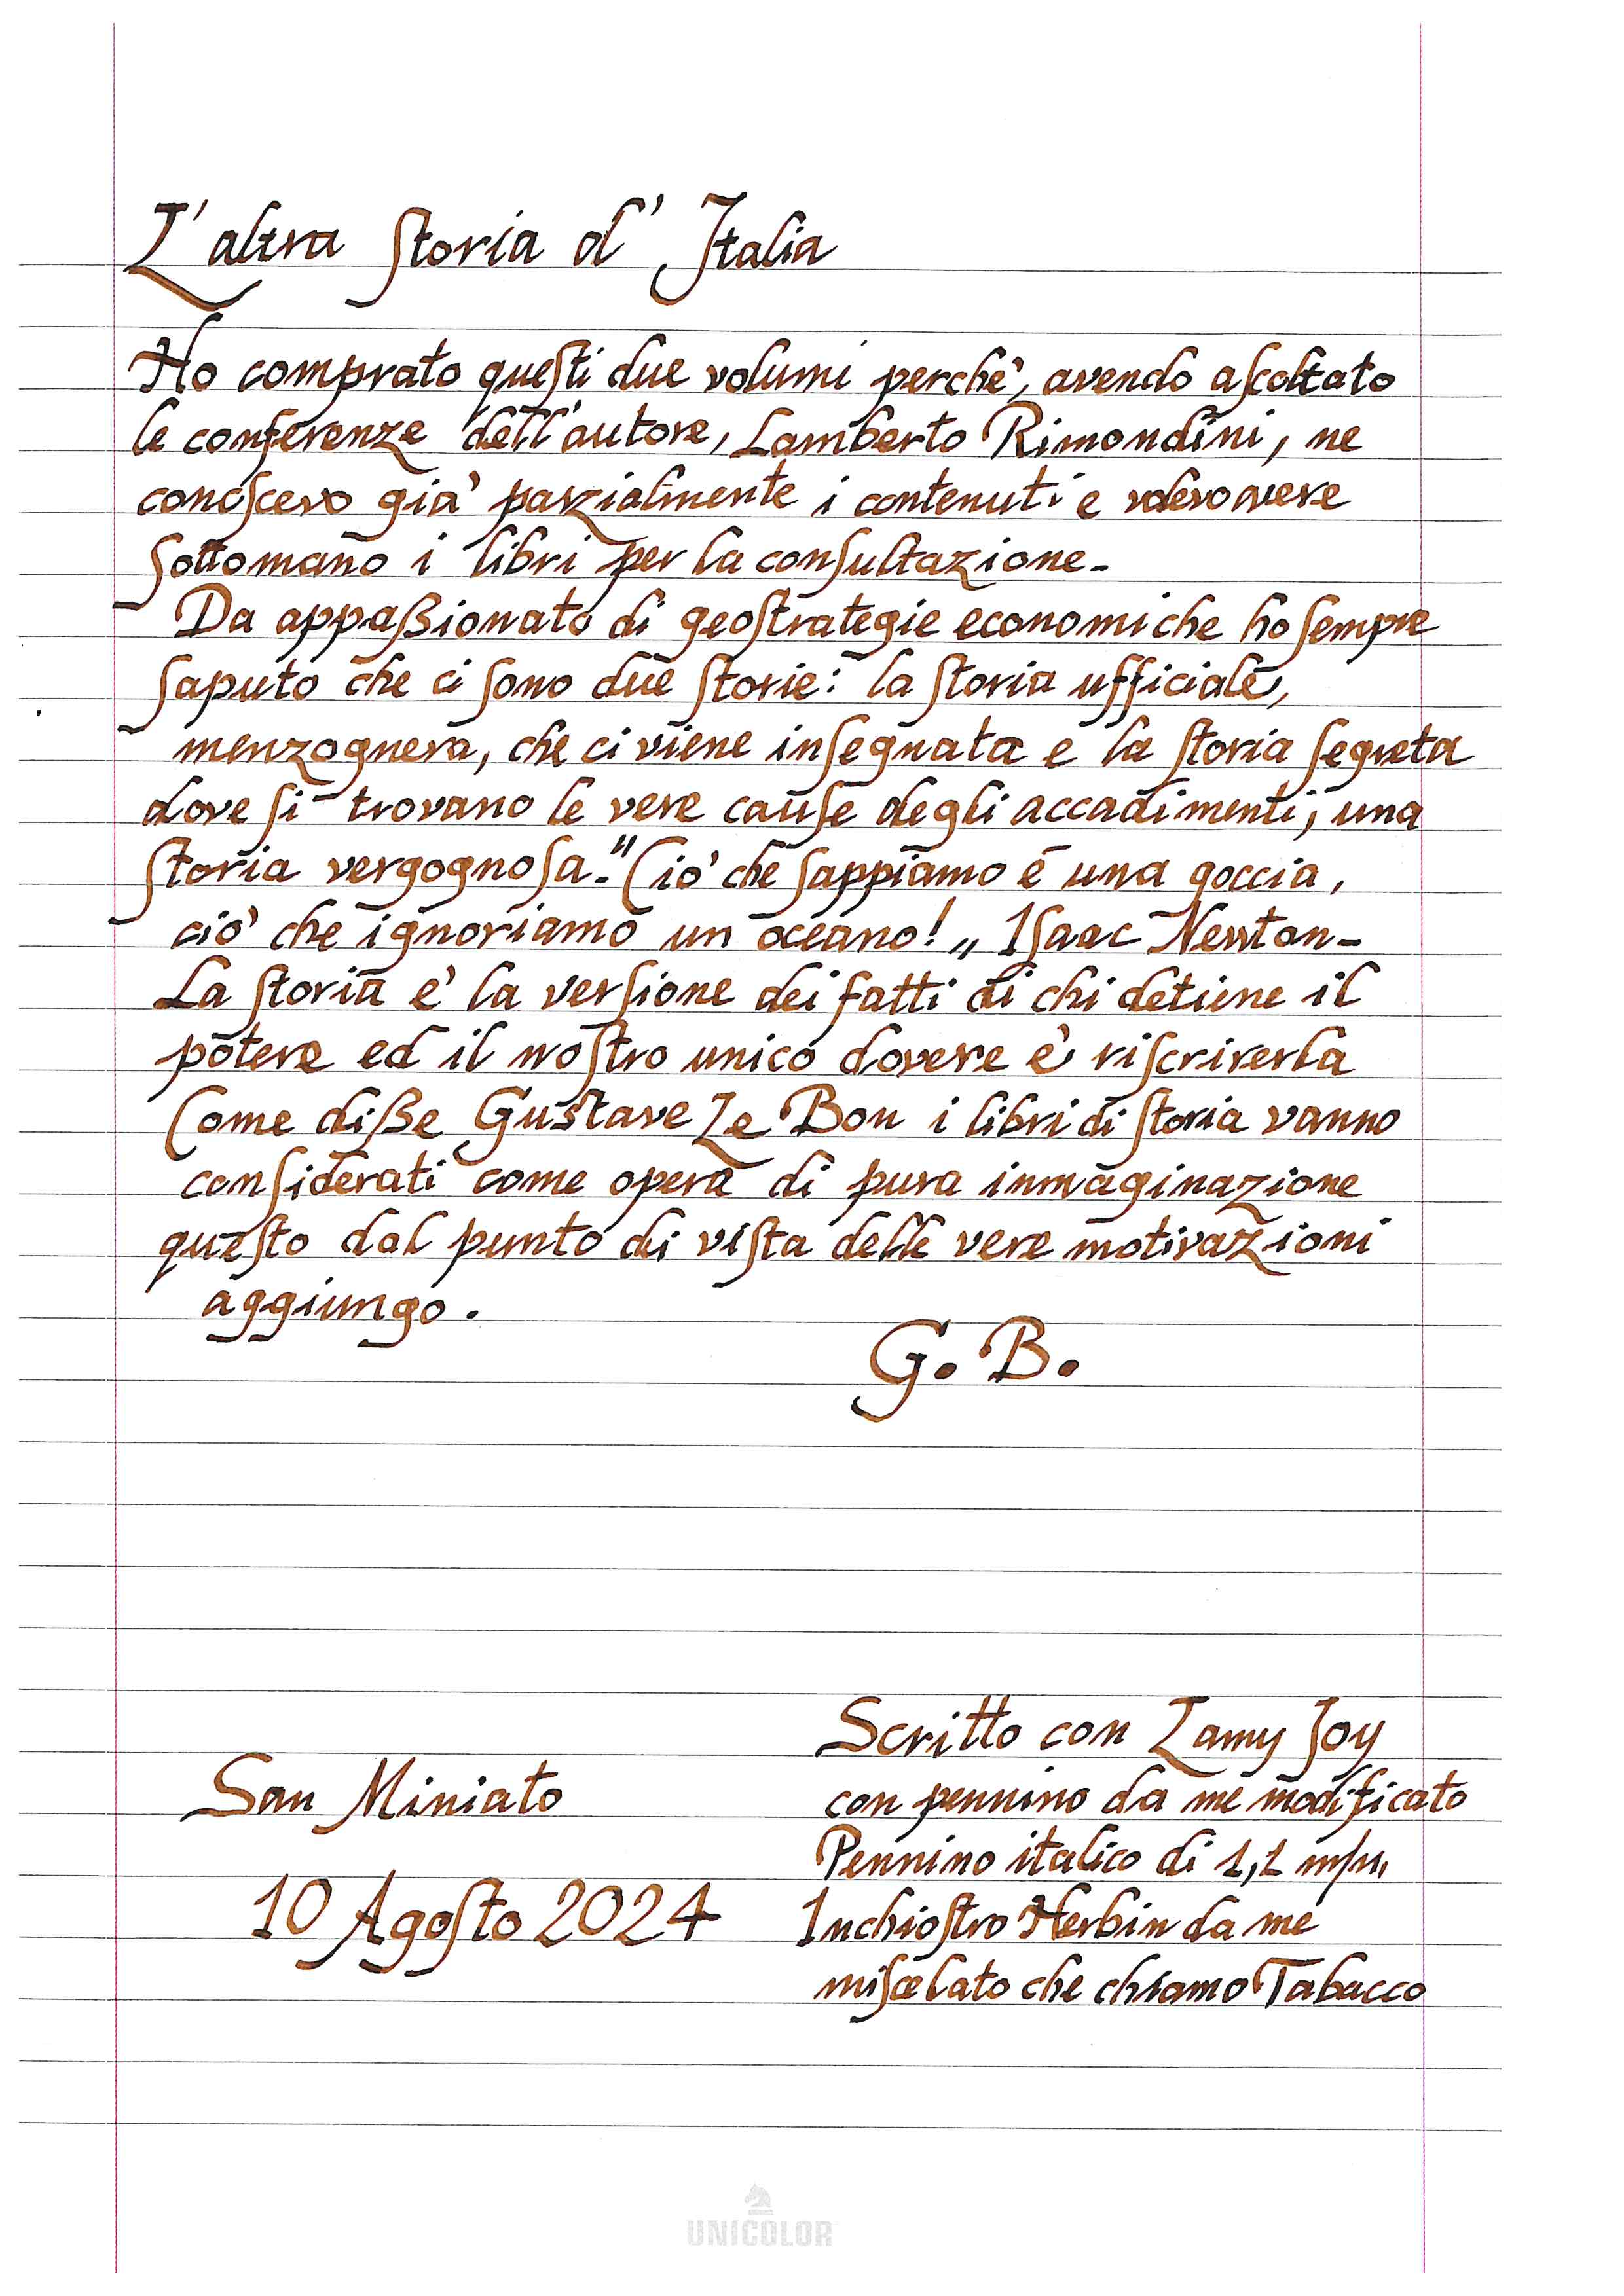 L'altra storia d'Italia
Ho comprato questi due volumi perche', avendo ascoltato
le conferenze dell'autore, Lamberto Rimondini, ne
conoscevo gia' parzialmente i contenuti e volevo avere
sottomano i libri per la consultazione.
Da appaßionato di geostrategie economiche ho sempre
saputo che ci sono due storie: la storia ufficiale,
menzognera, che ci viene insegnata e la storia segreta
dove si trovano le vere cause degli accadimenti, una
storia vergognosa." Cio' che sappiamo é una goccia,
cio' che ignoriamo un oceano! „ Isaac Newton-
La storia e' la versione dei fatti di chi detiene il
potere ed il nostro unico dovere e' riscriverla
Come diße Gustave Le Bon i libri di storia vanno
considerati come opera di pura immaginazione
questo dal punto di vista delle vere motivazioni
aggiungo.
G. B.
San Miniato
10 Agosto 2024
Scritto con Lamy Joy
con pennino da me modificato
Pennino italico di 1,1 m/m
Inchiostro Herbin da me
miscelato che chiamo Tabacco
UNICOLOR